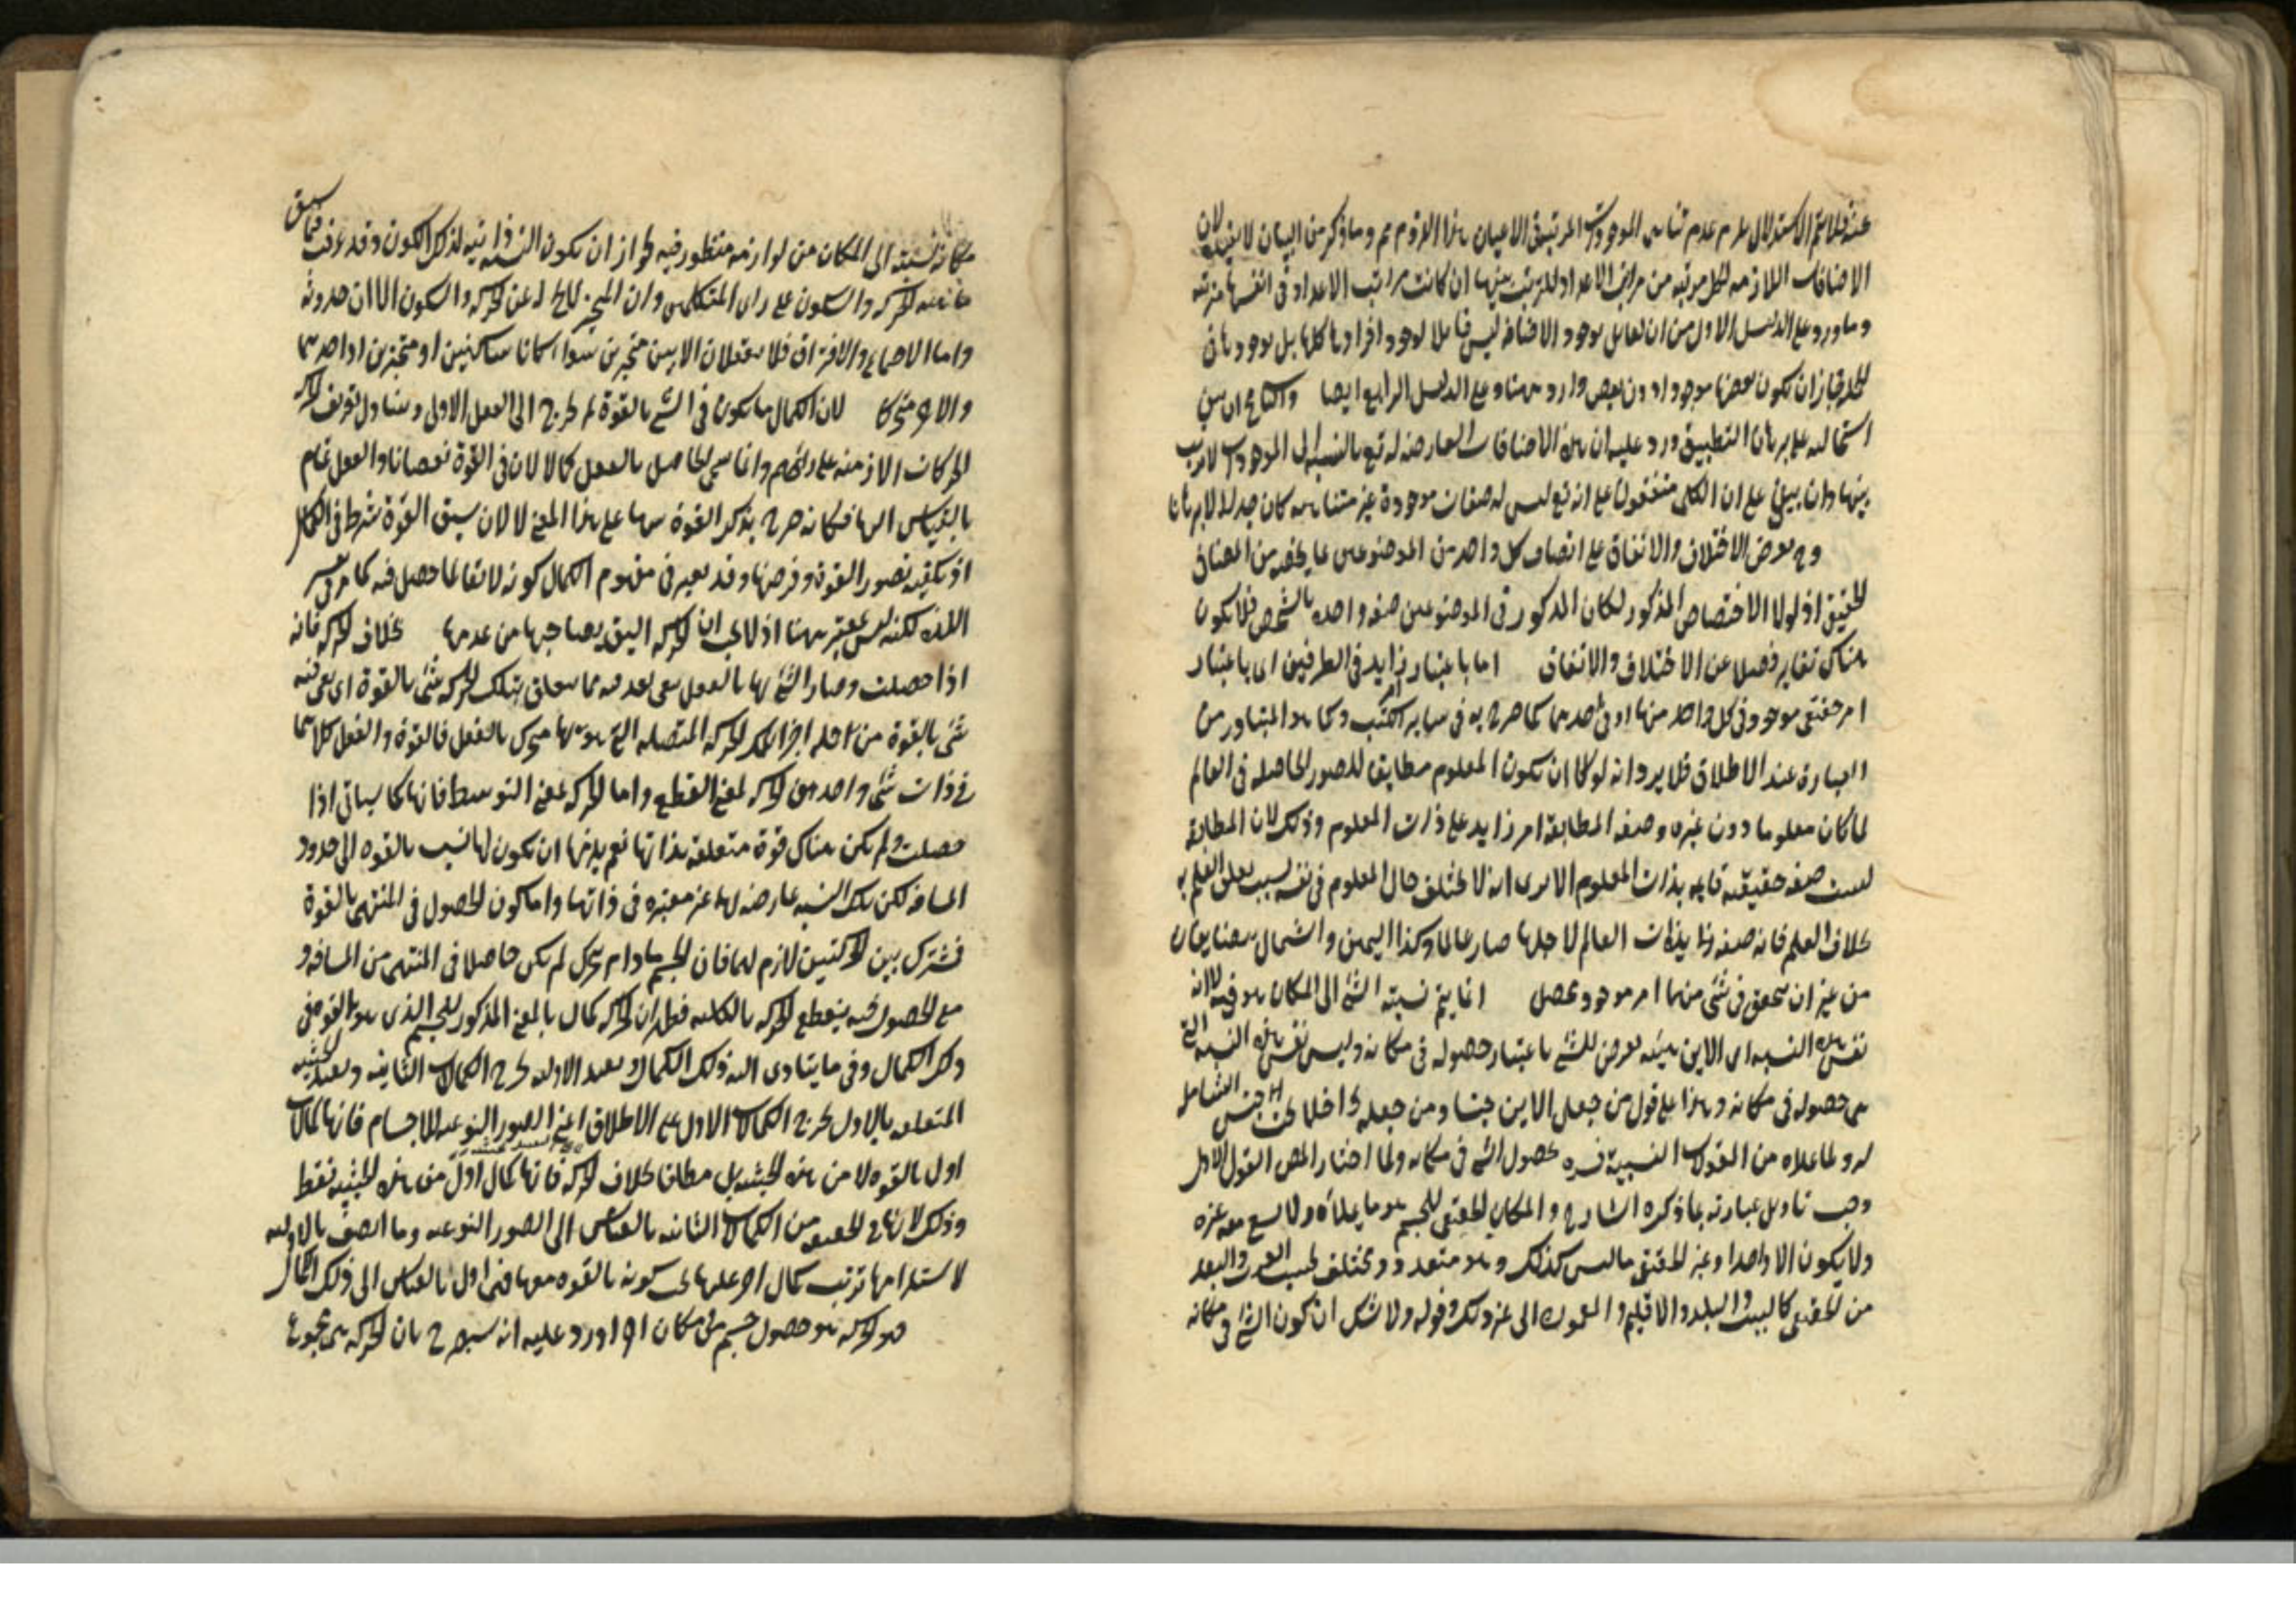 عنه فلا يتم الاستدلال يلزم عدم تناهى الموجودات المرتبة فى الاعيان هذا اللزوم مم وما ذكر من البيان لا يفيده لان
الاضافات اللازمة لكل مرتبة من مراتب الاعداد لا ترتب بينها ان كانت مراتب الاعداد فى انفسها مترتبة
وما ورد على الدليل الاول من ان القايل بوجود الاضافة ليس قايلا بوجود افرادها كلها بل بوجودها فى
الجملة فجاز ان يكون بعضها موجودا دون بعض وارد ههنا وعلى الدليل الرابع ايضا
استحالته على برهان التطبيق ورد عليه ان هذه الاضافات العارضة له تع بالنسبة الى الموجودات لا ترتب
بينها وان بين على ان الكل متفقون على انه تع ليس له صفات موجودة غير متناهية كان جدليا لا برهانيا
وح يعرض الاختلاف والاتفاق على اتصاف كل واحد من الموضوعين بما يخصه من المضاف
الحقيقى اذ لولا الاختصاص المذكور لكان المذكور فى الموضوعين صفة واحدة بالشخص فلا يكون
هناك تغاير فضلا عن الاختلاف والاتفاق اما باعتبار زايد فى الطرفين اى باعتبار
امر حقيقى موجود فى كل واحد منها او فى احدهما كما صرح به فى ساير الكتب وكما هو المتبادر من
العبارة عند الاطلاق فلا يرد انه لولا ان يكون المعلوم مطابقا للصور الحاصلة فى العالم
لما كان معلوما دون غيره وصفة المطابقة امر زايد على ذات المعلوم وذلك لان المطابقة
ليست صفة حقيقية قايمة بذات المعلوم الا يرى انه لا يختلف حال المعلوم فى نفسه بسبب تعلق العلم به
بخلاف العلم فانه صفة زايدة بذات العالم لاجلها صار عالما وكذا اليمين والشمال يتضايفان
من غير ان يتحقق فى شئ منهما امر موجود محصل انما يتم نسبة الشئ الى المكان هو فيه لا انه
نفس هذه النسبة اى الاين هيئة تعرض للشئ باعتبار حصوله فى مكانه وليس نفس هذه النسبة التى
هى حصوله فى مكانه وهذا على قول من جعل الاين جنسا ومن جعله داخلا تحت الجنس الشامل
له ولما عداه من المقولات النسبية فسره بحصول الشئ فى مكانه ولما اختار المص القول الاول
وجب تاويل عبارته بما ذكره الشارح والمكان الحقيقى للجسم هو ما يملأه ولا يسع معه غيره
ولا يكون الا واحدا وغير الحقيقى ما ليس كذلك وهو متعدد ومختلف بحسب القرب والبعد
من الحقيقى كالبيت والبلد والاقليم والمعمورة الى غير ذلك وقوله ولا شك ان كون الشئ فى مكانه
مكانه نسبته الى المكان من لوازمه منظور فيه لجواز ان يكون النسبة ذاتية لذلك الكون وقد عرفت فيما سبق
ماهية الحركة والسكون على راى المتكلمين وان المتحيز لا يخ له عن الحركة والسكون الا آن حدوثه
واما الاجتماع والافتراق فلا يعقلان الا بين متحيزين سواء كانا ساكنين او متحركين او احدهما
والآخر متحركا لان الكمال ما يكون فى الشئ بالقوة ثم يخرج الى الفعل الاولى ويتناول تعريف الحركة
الحركات الازمنة على رايهم وانما سمى الحاصل بالفعل كمالا لان فى القوة نقصانا والفعل تمام
بالقياس اليها فكانه صرح بذكر القوة ههنا على هذا المعنى لا لان سبق القوة شرط فى الكمال
اذ يكفيه تصور القوة وفرضها وقد يعتبر فى مفهوم الكمال كونه لائقا لما حصل فيه كما مر فى تفسير
اللذة لكنه ليس بمعتبر ههنا اذ لا يجب ان الحركة اليق بصاحبها من عدمها بخلاف الحركة فانه
اذا حصلت وصار الشئ بها بالفعل بقى بعد فيه مما يتعلق بتلك الحركة شئ بالقوة اى بقى فيه
شئ بالقوة من اجله اجزاء تلك الحركة المتصلة التى هو بها متحرك بالفعل فالقوة والفعل كلاهما
فى ذات شئ واحد هو الحركة بمعنى القطع واما الحركة بمعنى التوسط فانها كما سياتى اذا
حصلت لم يكن هناك قوة متعلقة بذاتها نعم يلزمها ان يكون لها نسب بالقوة الى حدود
المسافة لكن تلك النسبة عارضة لها غير معتبرة فى ذاتها واما كون الحصول فى المنتهى بالقوة
فمشترك بين الحركتين لازم لهما فان الجسم ما دام يتحرك لم يكن حاصلا فى المنتهى من المسافة و
مع الحصول فيه ينقطع الحركة بالكلية فظهر ان الحركة كمال بالمعنى المذكور للجسم الذى هو بالقوة فى
ذلك الكمال وفى ما يتادى اليه ذلك الكمال وبقيد الاولية يخرج الكمالات الثانية وبقيد الحيثية
المتعلقة بالاول يخرج الكمالات الاول على الاطلاق اعنى الصور النوعية للاجسام فانها كمالات
اول بالقوة لا من هذه الحيثية بل مطلقا بخلاف الحركة فانها كمال اول من هذه الحيثية فقط
وذلك لانها فى الحقيقة من الكمالات الثانية بالقياس الى الصور النوعية وما اتصف بالاولية
لاستلزامها ترتب كمال آخر عليها بحيث يكون بالقوة معها فهى اول بالقياس الى ذلك الكمال
هو الحركة هو حصول جسم فى مكان آخر اورد عليه انه سيصرح بان الحركة هى مجموع